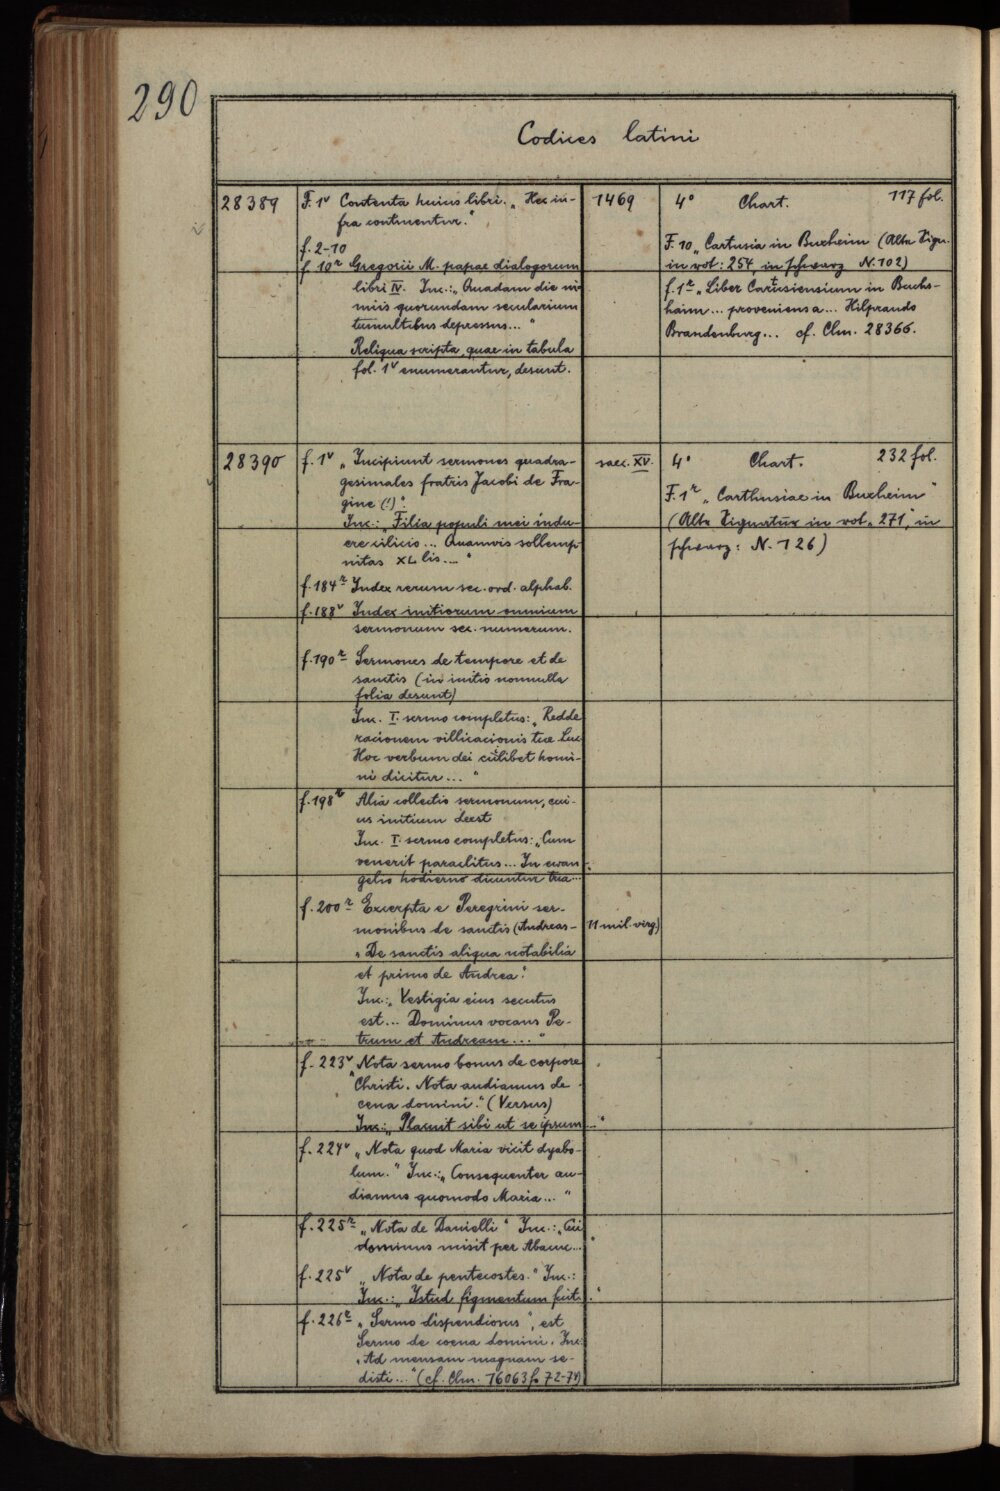 290
Codices latini
28389
F. 1v Contenta huius libri. „Hec in-
fra continentur."
f. 2-10
f. 10r Gregorii M. papae dialogorum
libri IV. Inc.: „Quadam die ni-
miis quorundam secularium
tumultibus depressus..."
Reliqua scripta, quae in tabula
fol. 1v enumerantur, desunt.
1469
4° Chart. 117 fol.
F. 10 „Cartusia in Buxheim (Alte Sign.
in rot: 254, in schwarz N. 102)
f. 1r „Liber Cartusiensium in Buchs-
haim... proveniens a... Hilprando
Brandenburg... cf. Clm. 28366.
28390
f. 1v „Incipiunt sermones quadra-
gesimales fratris Jacobi de Fra-
gine (!)".
Inc.: „Filia populi mei indu-
ere cilicio... Quamvis sollemp-
nitas XL lis..."
f. 184r Index rerum sec. ord. alphab.
f. 188v Index initiorum omnium
sermonum sec. numerum.
f. 190r Sermones de tempore et de
sanctis (in initio nonnulla
folia desunt)
Inc. I. sermo completus: „Redde
racionem villicacionis tue Luc
Hoc verbum dei cuilibet homi-
ni dicitur..."
f. 198r Alia collectio sermonum, cui-
us initium deest
Inc. I. sermo completus: „Cum
venerit paraclitus... In ewan-
gelio hodierno dicuntur tria...
f. 200r Excerpta e Peregrini ser-
monibus de sanctis (Andreas- 11 mil. virg)
„De sanctis aliqua notabilia
et primo de Andrea".
Inc.: „Vestigia eius secutus
est... Dominus vocans Pe-
trum et Andream..."
f. 223v „Nota sermo bonus de corpore
Christi. Nota audiamus de
cena domini." (Versus)
Inc.: „Placuit sibi ut se ipsum..."
f. 224v „Nota quod Maria vicit dyabo-
lum." Inc.: „Consequenter au-
diamus quomodo Maria..."
f. 225r „Nota de Danielli" Inc.: „Cui
dominus misit per Abacuc..."
f. 225v „Nota de pentecostes." Inc.:
Inc.: „Istud figmentum fuit..."
f. 226r „Sermo dispendiosus", est
Sermo de coena domini. Inc:
„Ad mensam magnam se-
disti..." (cf. Clm. 16063 f. 72-74)
saec. XV.
4° Chart. 232 fol.
F. 1r „Carthusiae in Buxheim"
(Alte Signatur in rot „271", in
schwarz: N. 126)